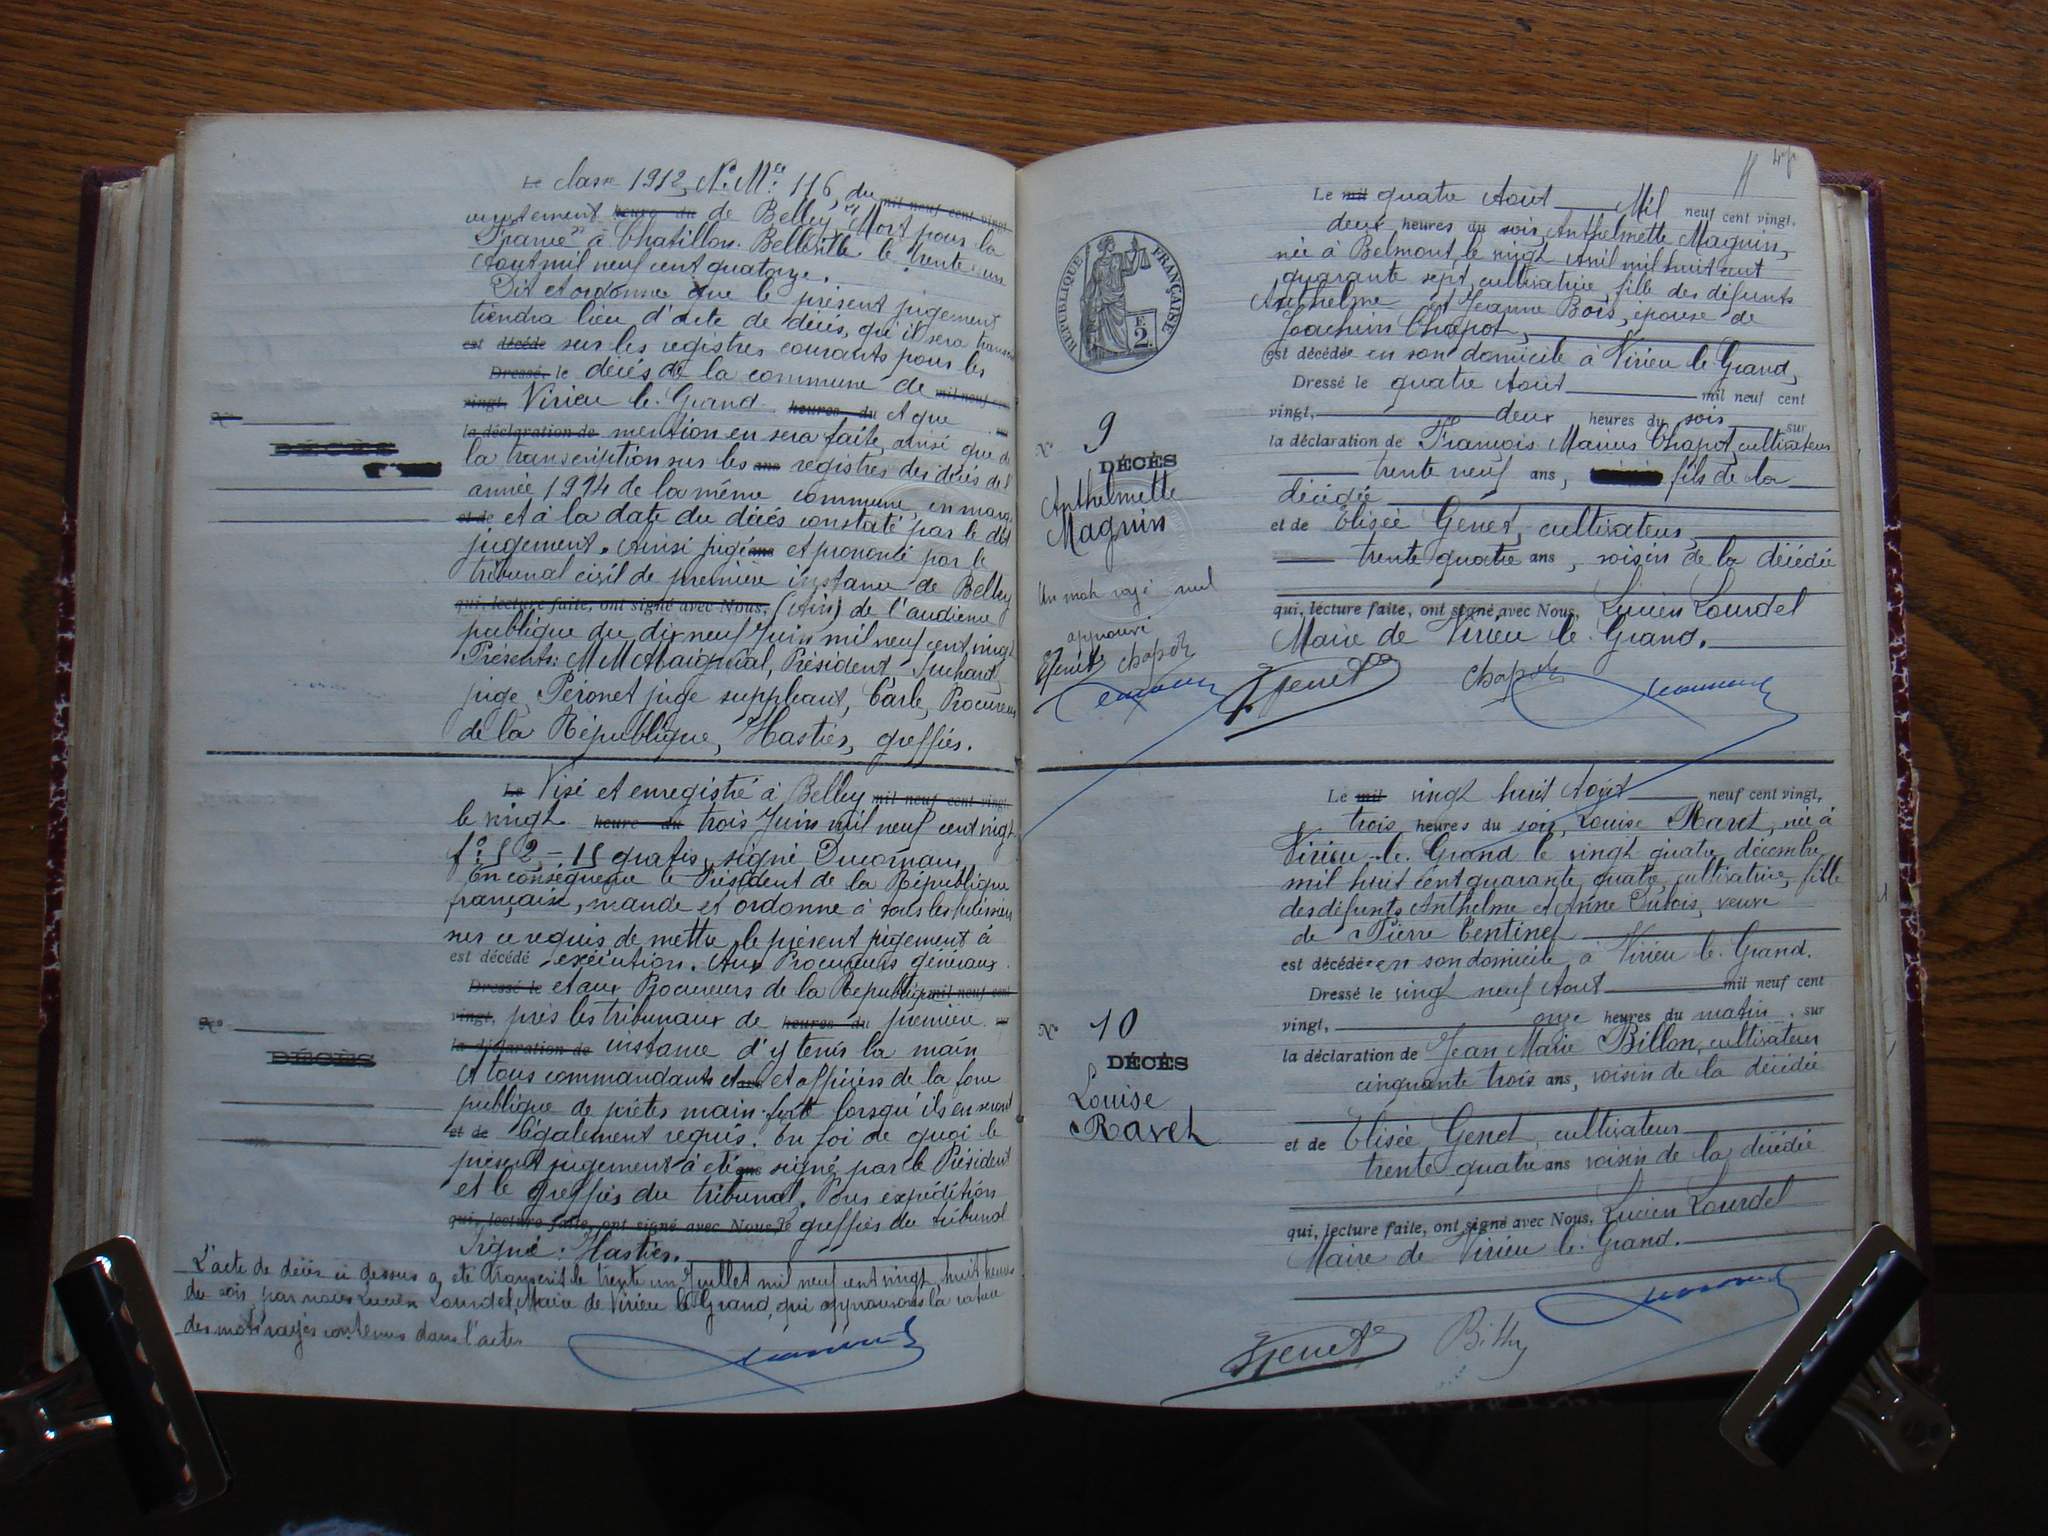 Le classe 1912, No Mle 116, du mil neuf cent vingt
recrutement heure du de Belley, "Mort pour la
France" à Chatillon. Bellville le trente un
Aout mil neuf cent quatorze.
Dit et ordonne que le présent jugement
tiendra lieu d'acte de décès, qu'il sera transcrit
est décédé sur les registres courants pour les
Dressé, le décès de la commune de mil neuf cent
vingt, Virieu le Grand heures du et que
la déclaration de mention en sera faite, ainsi que de
la transcription sur les ans registres des décès de l'
année 1914 de la même commune, en marge
et de et à la date du décès constaté par le dit
jugement. Ainsi jugé ans et prononcé par le
tribunal civil de première instance de Belley
qui, lecture faite, ont signé avec Nous, (Ain) de l'audience
publique du dix neuf Juin mil neuf cent vingt
Présents: M M Président, juge,
Péronet juge suppléant, Carle, Procureur
de la République, Hastiés, greffier.
No
DÉCÈS
Le Visé et enregistré à Belley mil neuf cent vingt
le vingt heure du trois Juin mil neuf cent vingt
fo 52 - 15 gratis, signé
En conséquence le Président de la République
française, mande et ordonne à tous les huissiers
sur ce requis de mettre le présent jugement à
est décédé exécution. Aux Procureurs généraux
Dressé le et aux Procureurs de la République mil neuf cent
vingt, près les tribunaux de heures du première
la déclaration de instance d'y tenir la main
et tous commandants et ans et officiers de la force
publique de prêter main-forte lorsqu'ils en seront
et de légalement requis. En foi de quoi le
présent jugement à été ans signé par le Président
et le greffier du tribunal. Pour expédition
qui, lecture faite, ont signé avec Nous, Le greffier du tribunal
Signé: Hastiés.
No
DÉCÈS
L'acte de décès ci dessus a été transcrit le trente un Juillet mil neuf cent vingt, huit heures
du soir par nous Lucien Lourdel, Maire de Virieu le Grand, qui approuvons la rature
des mots rayés contenus dans l'acte
RÉPUBLIQUE FRANÇAISE
E
2.
No 9
DÉCÈS
Anthelmette
Magnin
Un mot rayé nul
approuvé
EGenet Chapot
Le mil quatre Août Mil neuf cent vingt,
deux heures du soir, Anthelmette Magnin,
née à Belmont le vingt Avril mil huit cent
quarante sept, cultivatrice, fille des défunts
Anthelme et Jeanne Bois, épouse de
Joachim Chapot,
est décédée en son domicile à Virieu le Grand,
Dressé le quatre Août mil neuf cent
vingt, deux heures du soir sur
la déclaration de François Marius Chapot, cultivateur
trente neuf ans, fils de la
décédée
et de Elisée Genet, cultivateur,
trente quatre ans, voisin de la décédée
qui, lecture faite, ont signé avec Nous, Lucien Lourdel
Maire de Virieu le Grand.
EGenet Chapot
No 10
DÉCÈS
Louise
Ravet
Le mil vingt huit Août neuf cent vingt,
trois heures du soir, Louise Ravet, née à
Virieu-le-Grand le vingt quatre décembre
mil huit cent quarante quatre, cultivatrice, fille
des défunts Anthelme et Anne Dubois, veuve
de Pierre Centinet
est décédée en son domicile à Virieu le Grand.
Dressé le vingt neuf Aout mil neuf cent
vingt, onze heures du matin sur
la déclaration de Jean Marie Billon, cultivateur
cinquante trois ans, voisin de la décédée
et de Elisée Genet, cultivateur
trente quatre ans voisin de la décédée
qui, lecture faite, ont signé avec Nous, Lucien Lourdel
Maire de Virieu le Grand.
EGenet